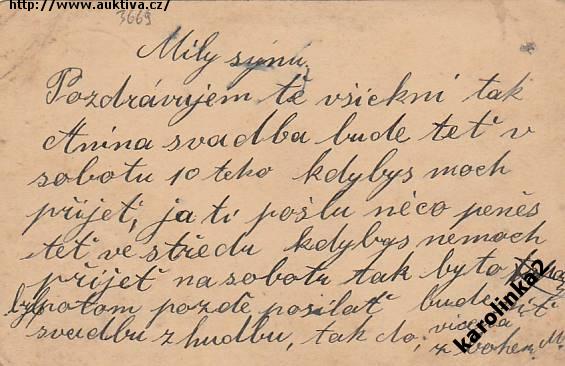 http://www.auktiva.cz/
3669
Mily synu,
Pozdrávujem tě všickni tak
Anina svadba bude teť v
sobotu 10 teho kdybys moch
přijeť, ja ti pošlu něco peněs
teť ve středu kdybys nemoch
přijeť na sobotu tak by to
bylo potom pozdě posilať bude
svadbu z hudbu, tak do,
z bohem
karolinka2